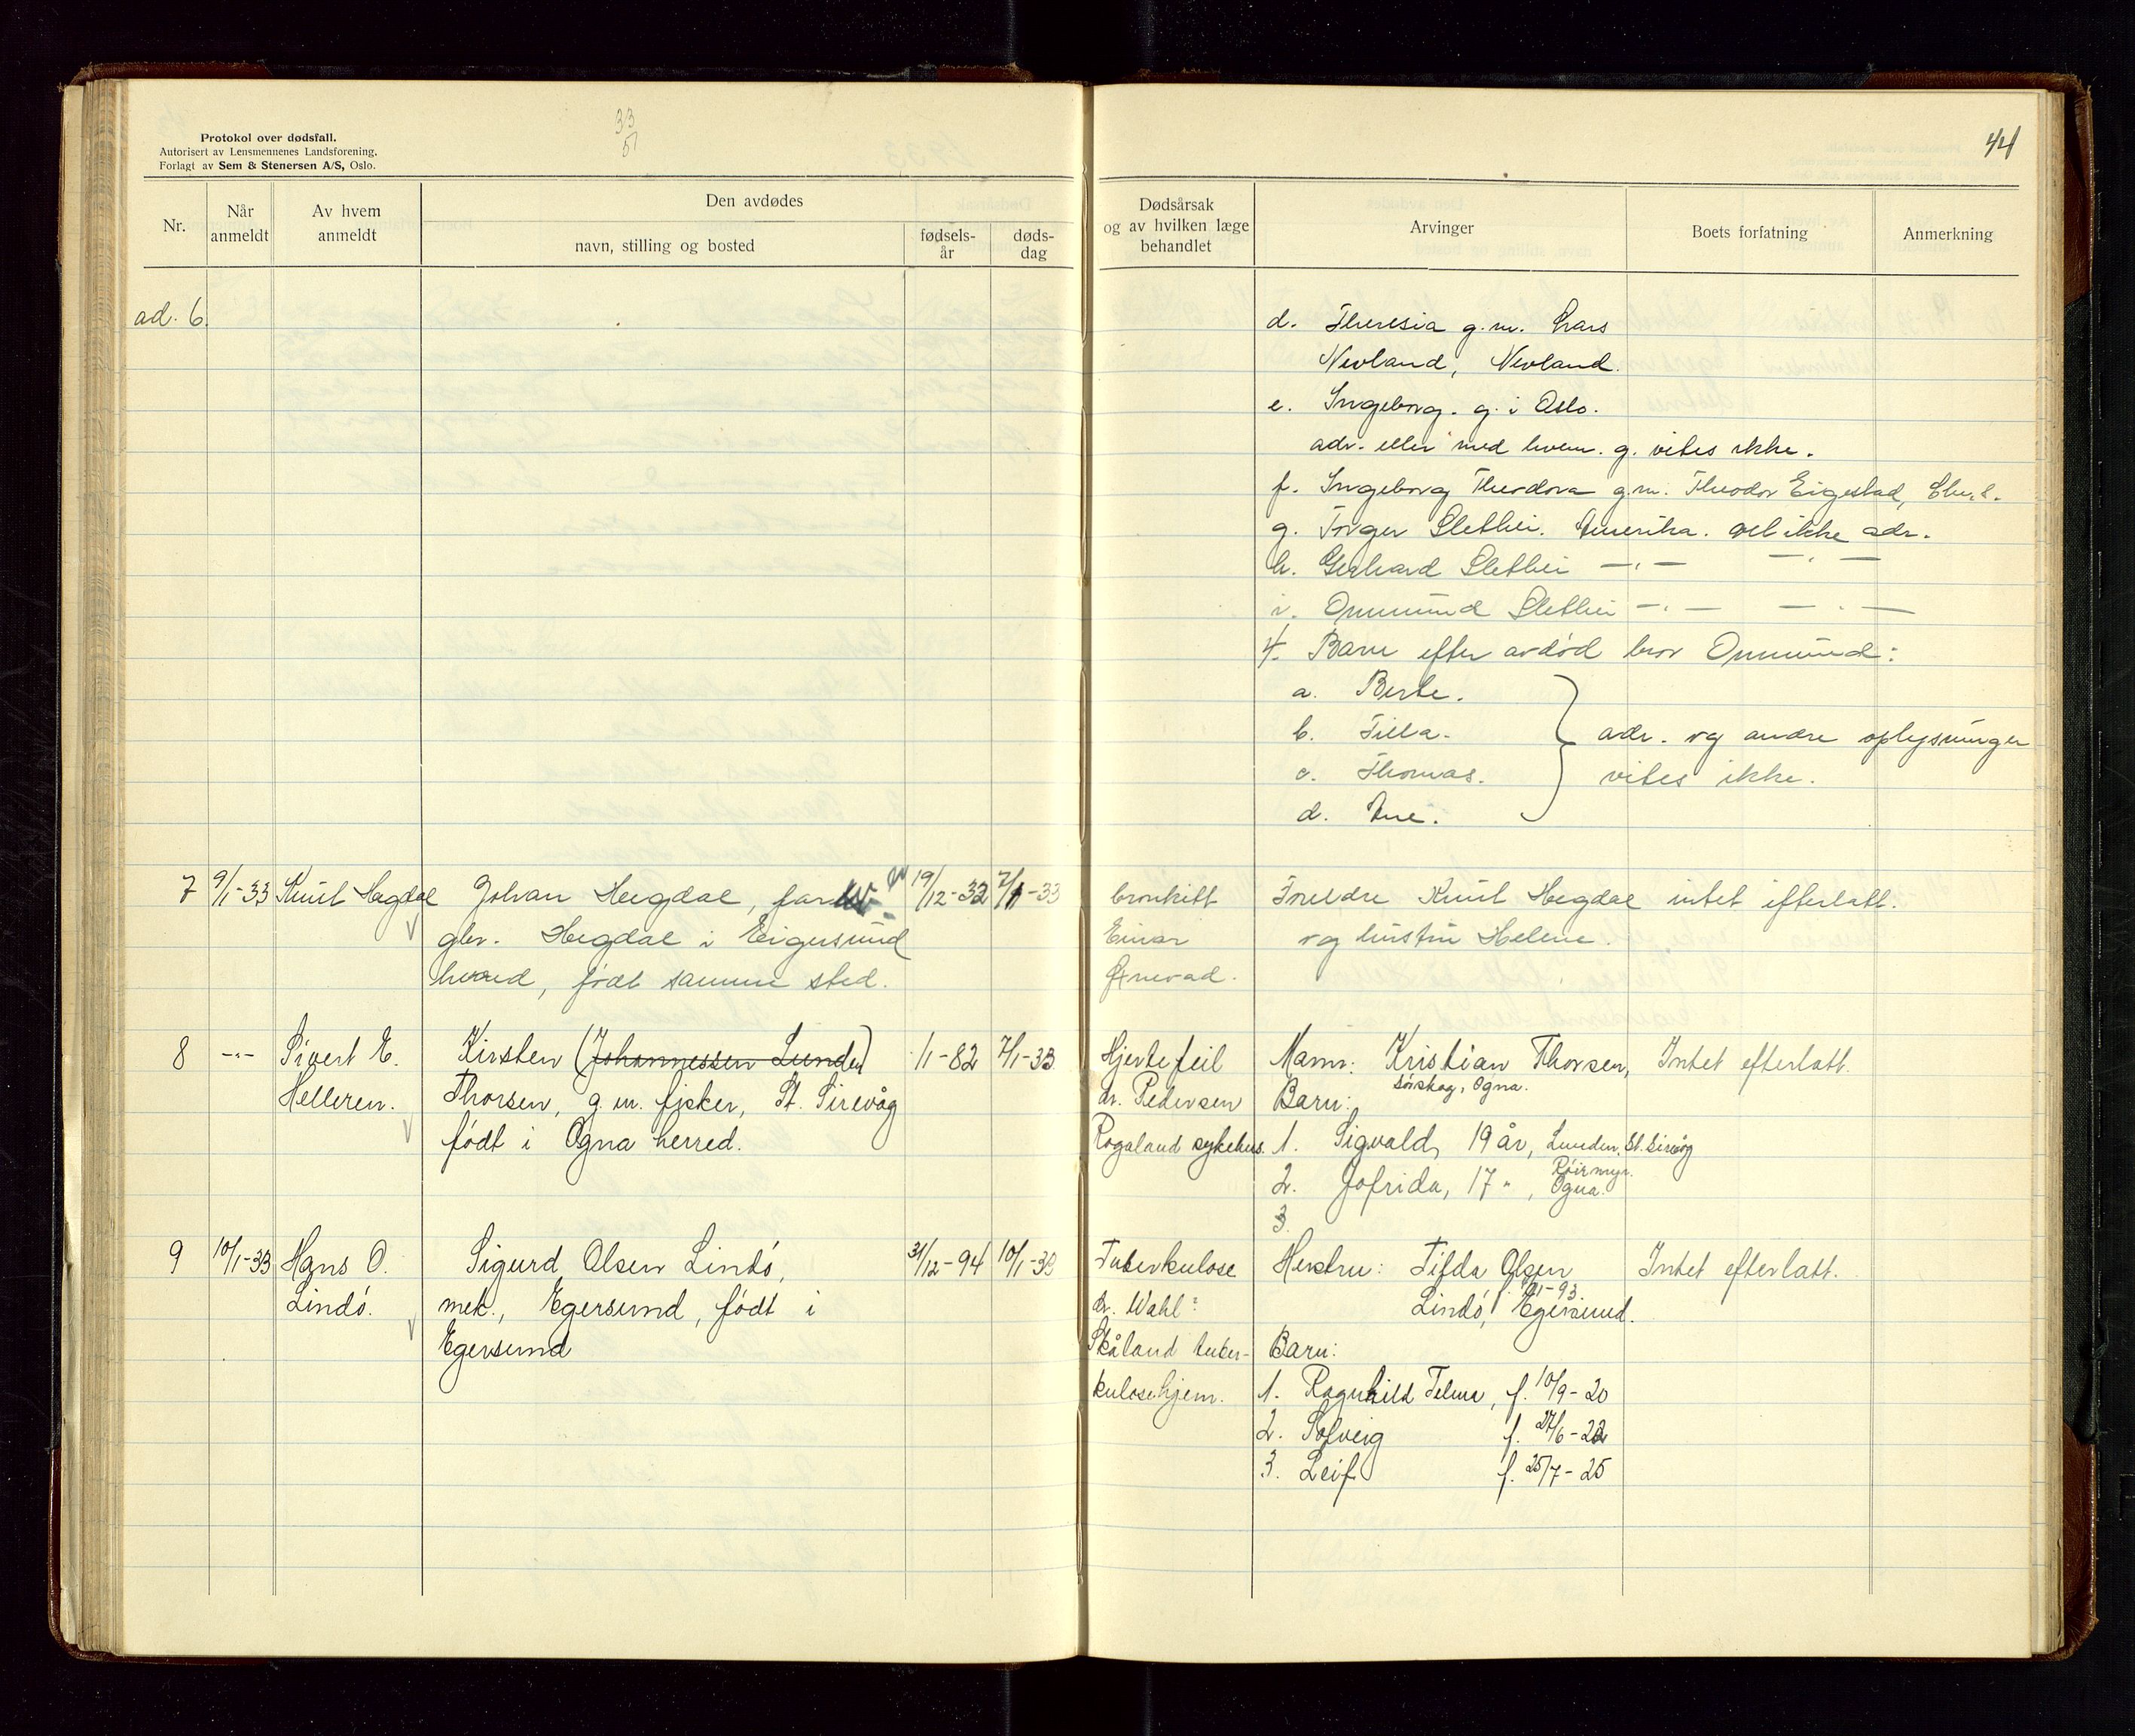 33
51
44
Protokol over dødsfall.
Autorisert av Lensmennenes Landsforening.
Forlagt av Sem & Stenersen A/S, Oslo.
Nr.
Når anmeldt
Av hvem anmeldt
Den avdødes
navn, stilling og bosted
fødsels-år
døds-dag
Dødsårsak og av hvilken læge behandlet
Arvinger
Boets forfatning
Anmerkning
ad. 6.
d. Theresia g.m. Lars
Nevland, Nevland.
e. Ingeborg. g. i Oslo.
adr. eller med hvem. g. vites ikke.
f. Ingeborg Theodora g.m. Theodor Eigestad,
g. Torger Slethei. Amerika. vet ikke adr.
h. Gerhard Slethei —"— —"—
i. Ommund Slethei —"— —"—
4. Barn efter avdød bror Ommund:
a. Berte.
b. Tilla.
c. Thomas.
d. Ane.
adr. og andre oplysninger
vites ikke.
7 9/1-33 Knut Hegdal Johan Hegdal, 19/12-32 7/1-33 bronkitt Foreldre Knut Hegdal intet efterlatt.
gbr. Hegdal i Eigersund Einar og hustru Helene.
herred, født samme sted. Årrevad.
8 -"- Sivert E. Kirsten (Johannessen Lunden) /1-82 7/1-33 Hjertefeil Mann: Kristian Thorsen, Intet efterlatt.
Sørskog, Ogna.
Helleren. Thorsen, g.m. fisker, St. Sirevåg dr. Pedersen Barn:
født i Ogna herred. Rogaland sykehus. 1. Sigvald, 19 år, Lunden, St. Sirevåg
2. Jofrida, 17 " , Røirmyr. Ogna.
3.
9 10/1-33 Hans O. Sigurd Olsen Lindø, 31/12-94 10/1-33 Tuberkulose Hustru: Tilda Olsen Intet efterlatt.
Lindø. mek., Egersund, født i dr. Wahl: Lindø, Egersund.
Egersund Skåland tuber- Barn:
kulosehjem. 1. Ragnhild Telma, f. 10/9-20
2. Solveig f. 27/6-22
3. Leif f. 25/7-25